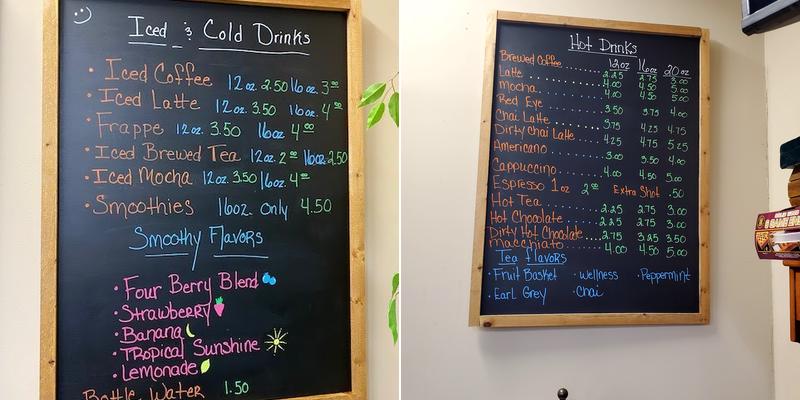 Iced & Cold Drinks
· Iced Coffee 12oz. 2.50 16oz. 3.00
· Iced Latte 12oz. 3.50 16oz. 4.00
· Frappe 12oz. 3.50 16oz 4.00
· Iced Brewed Tea 12oz. 2.00 16oz. 2.50
· Iced Mocha 12oz. 3.50 16oz. 4.00
· Smoothies 16oz. only 4.50
Smoothy Flavors
· Four Berry Blend
· Strawberry
· Banana
· Tropical Sunshine
· Lemonade
Bottle Water 1.50
Hot Drinks
12oz 16oz 20oz
Brewed Coffee 2.25 2.75 3.00
Latte 4.00 4.50 5.00
Mocha 4.00 4.50 5.00
Red Eye 3.50 3.75 4.00
Chai Latte 3.75 4.25 4.75
Dirty Chai Latte 4.25 4.75 5.25
Americano 3.00 3.50 4.00
Cappuccino 4.00 4.50 5.00
Espresso 1oz 2.00 Extra Shot .50
Hot Tea 2.25 2.75 3.00
Hot Chocolate 2.25 2.75 3.00
Dirty Hot Chocolate 2.75 3.25 3.50
Macchiato 4.00 4.50 5.00
Tea Flavors
· Fruit Basket · Wellness · Peppermint
· Earl Grey · Chai